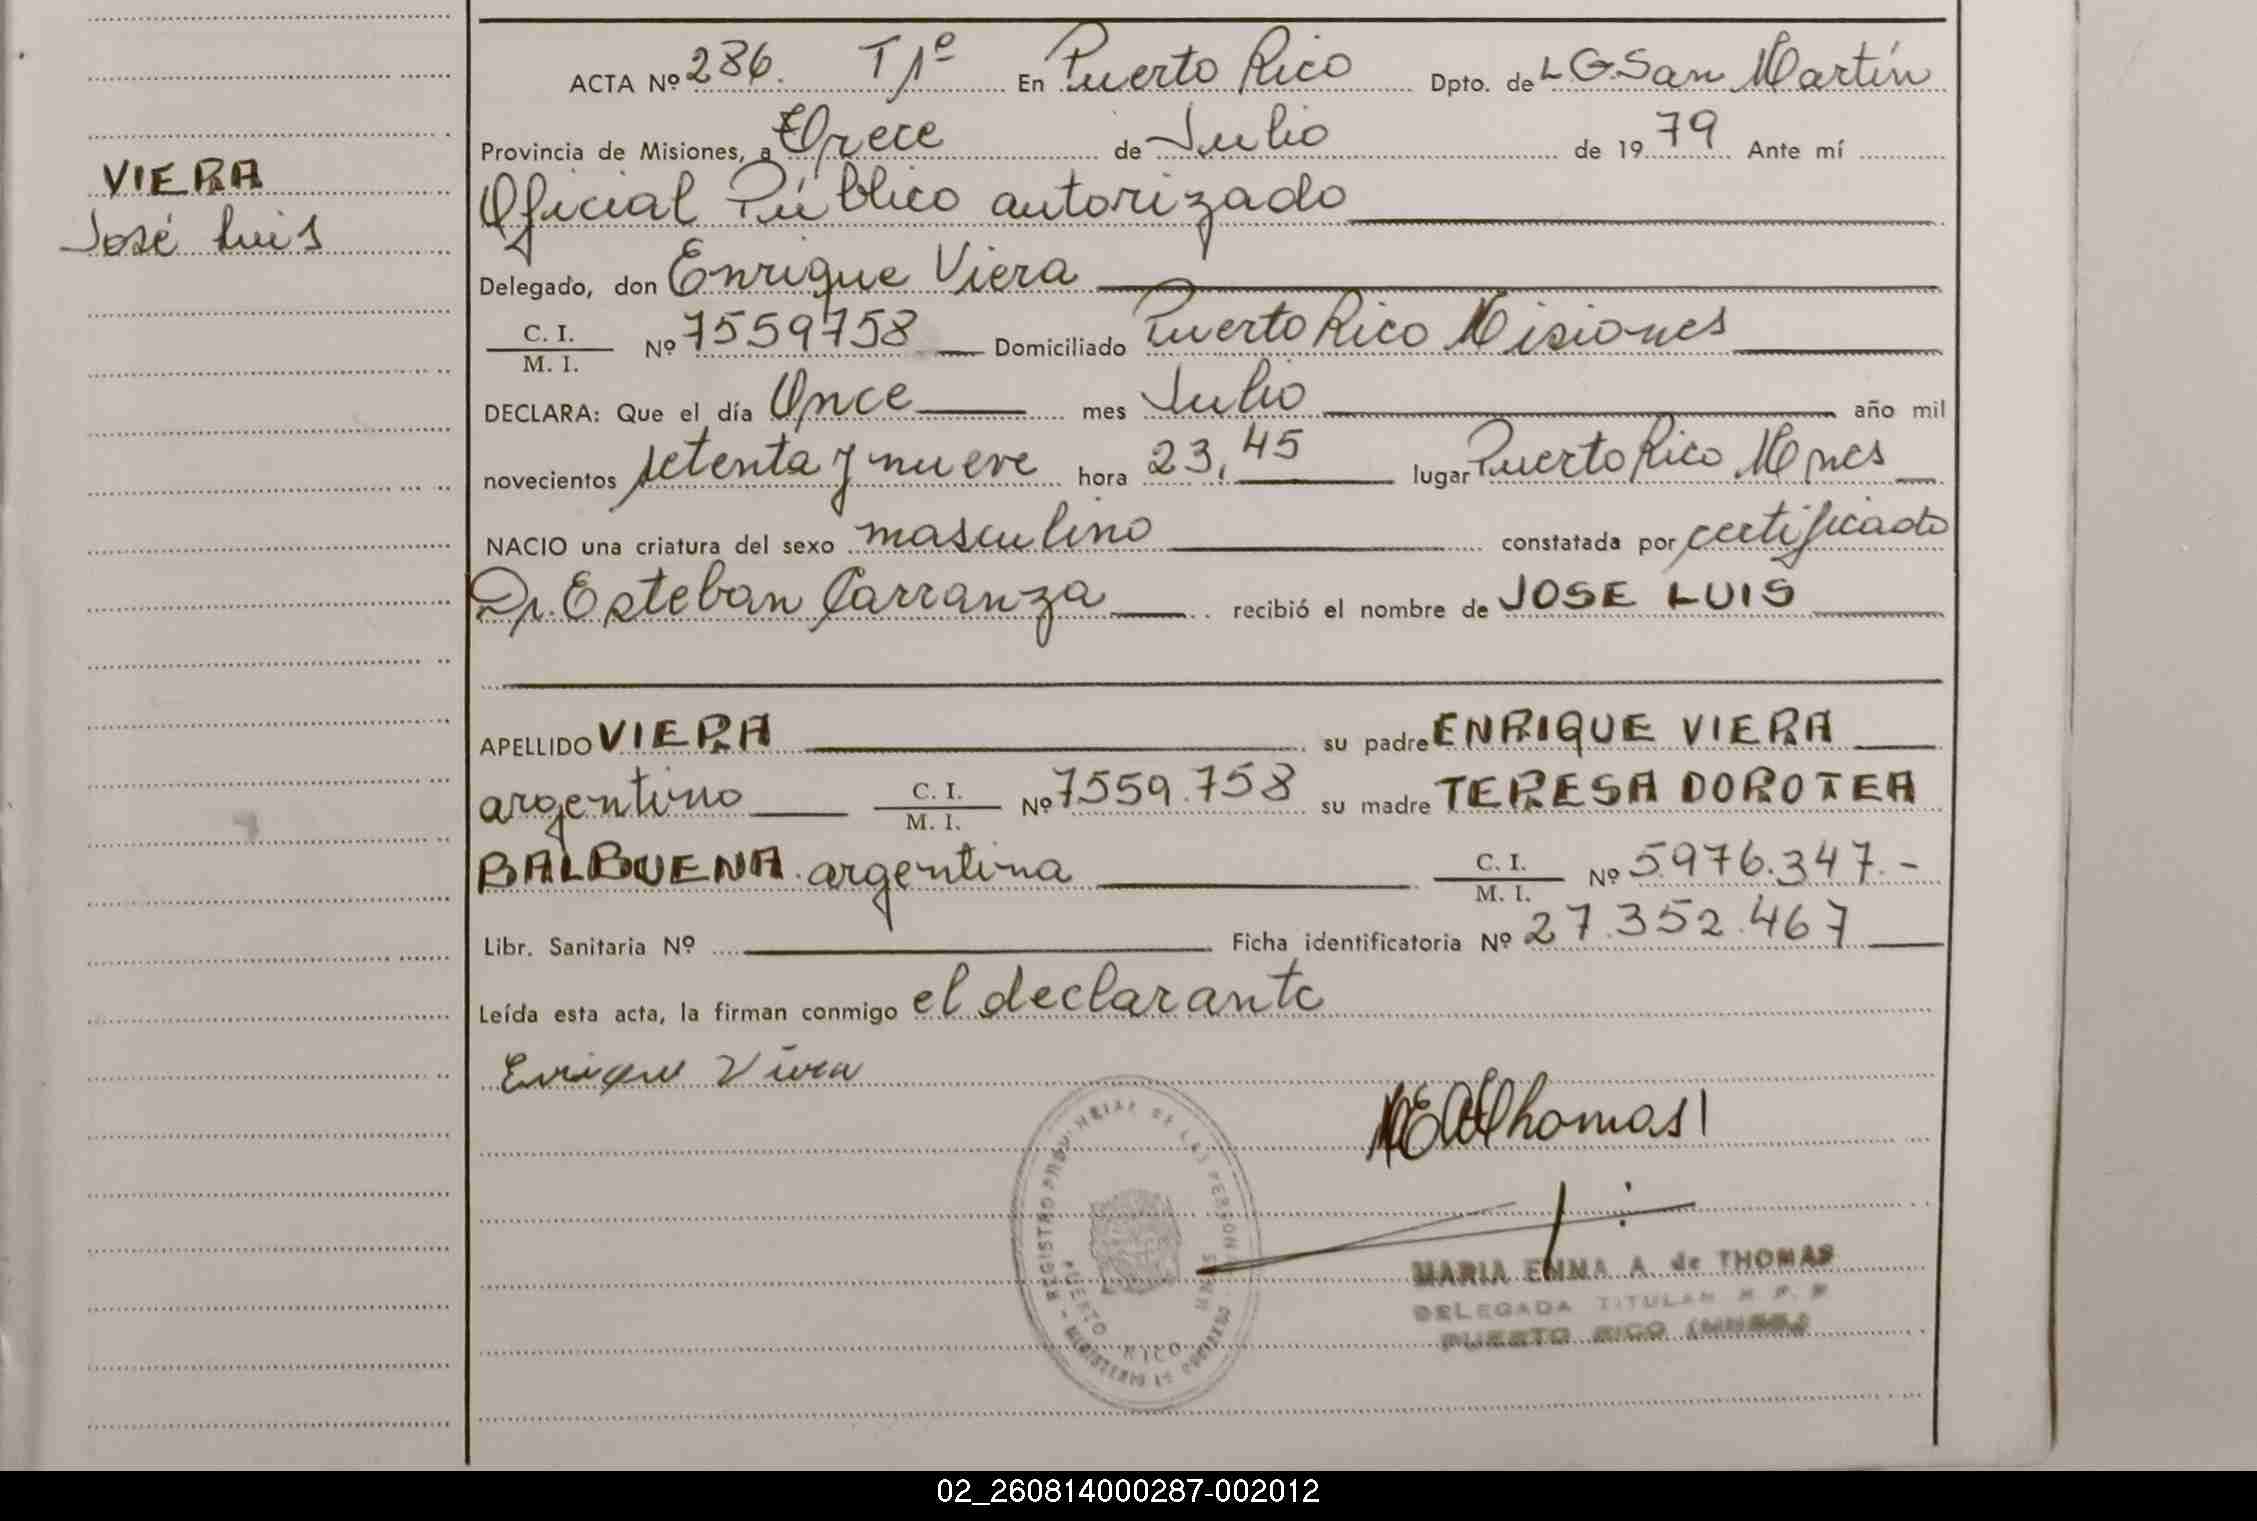 VIERA
José Luis
ACTA Nº 286. T 1º En Puerto Rico Dpto. de L.G. San Martín
Provincia de Misiones, a Trece de Julio de 1979 Ante mí
Oficial Público autorizado
Delegado, don Enrique Viera
C. I.
M. I. Nº 7559758 Domiciliado Puerto Rico Misiones
DECLARA: Que el día Once mes Julio año mil
novecientos setenta y nueve hora 23,45 lugar Puerto Rico Mnes
NACIO una criatura del sexo masculino constatada por certificado
Dr. Esteban Carranza recibió el nombre de JOSE LUIS
APELLIDO VIERA su padre ENRIQUE VIERA
argentino C. I. M. I. Nº 7559.758 su madre TERESA DOROTEA
BALBUENA. argentina C. I. M. I. Nº 5976.347.-
Libr. Sanitaria Nº Ficha identificatoria Nº 27.352.467
Leída esta acta, la firman conmigo el declarante
Enrique Viera
MEAThomas
REGISTRO PROVINCIAL DE LAS PERSONAS
PUERTO RICO
MINISTERIO DE GOBIERNO
MARIA EMMA A. de THOMAS
DELEGADA TITULAR R. P. P.
PUERTO RICO (MNES.)
02_260814000287-002012